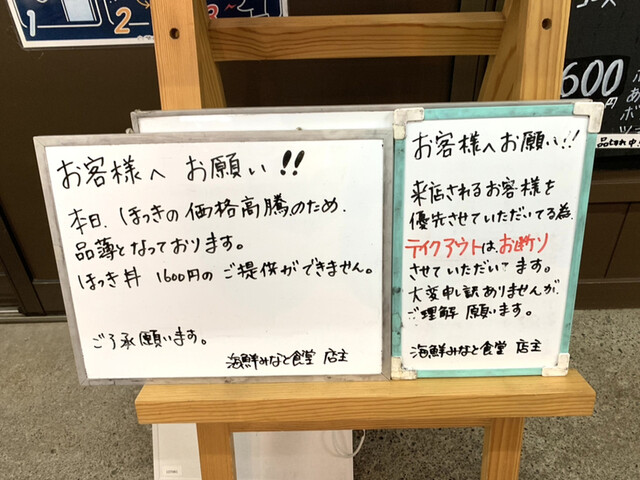 お客様へ お願い!!
本日、ほっきの価格高騰のため、
品薄となっております。
ほっき丼 1600円のご提供ができません。
ご了承願います。
海鮮みなと食堂 店主
お客様へお願い!!
来店されるお客様を
優先させていただいてる為、
テイクアウトは、お断り
させていただいてます。
大変申し訳ありませんが、
ご理解 願います。
海鮮みなと食堂 店主
1
2
3
600
円
品切れ中